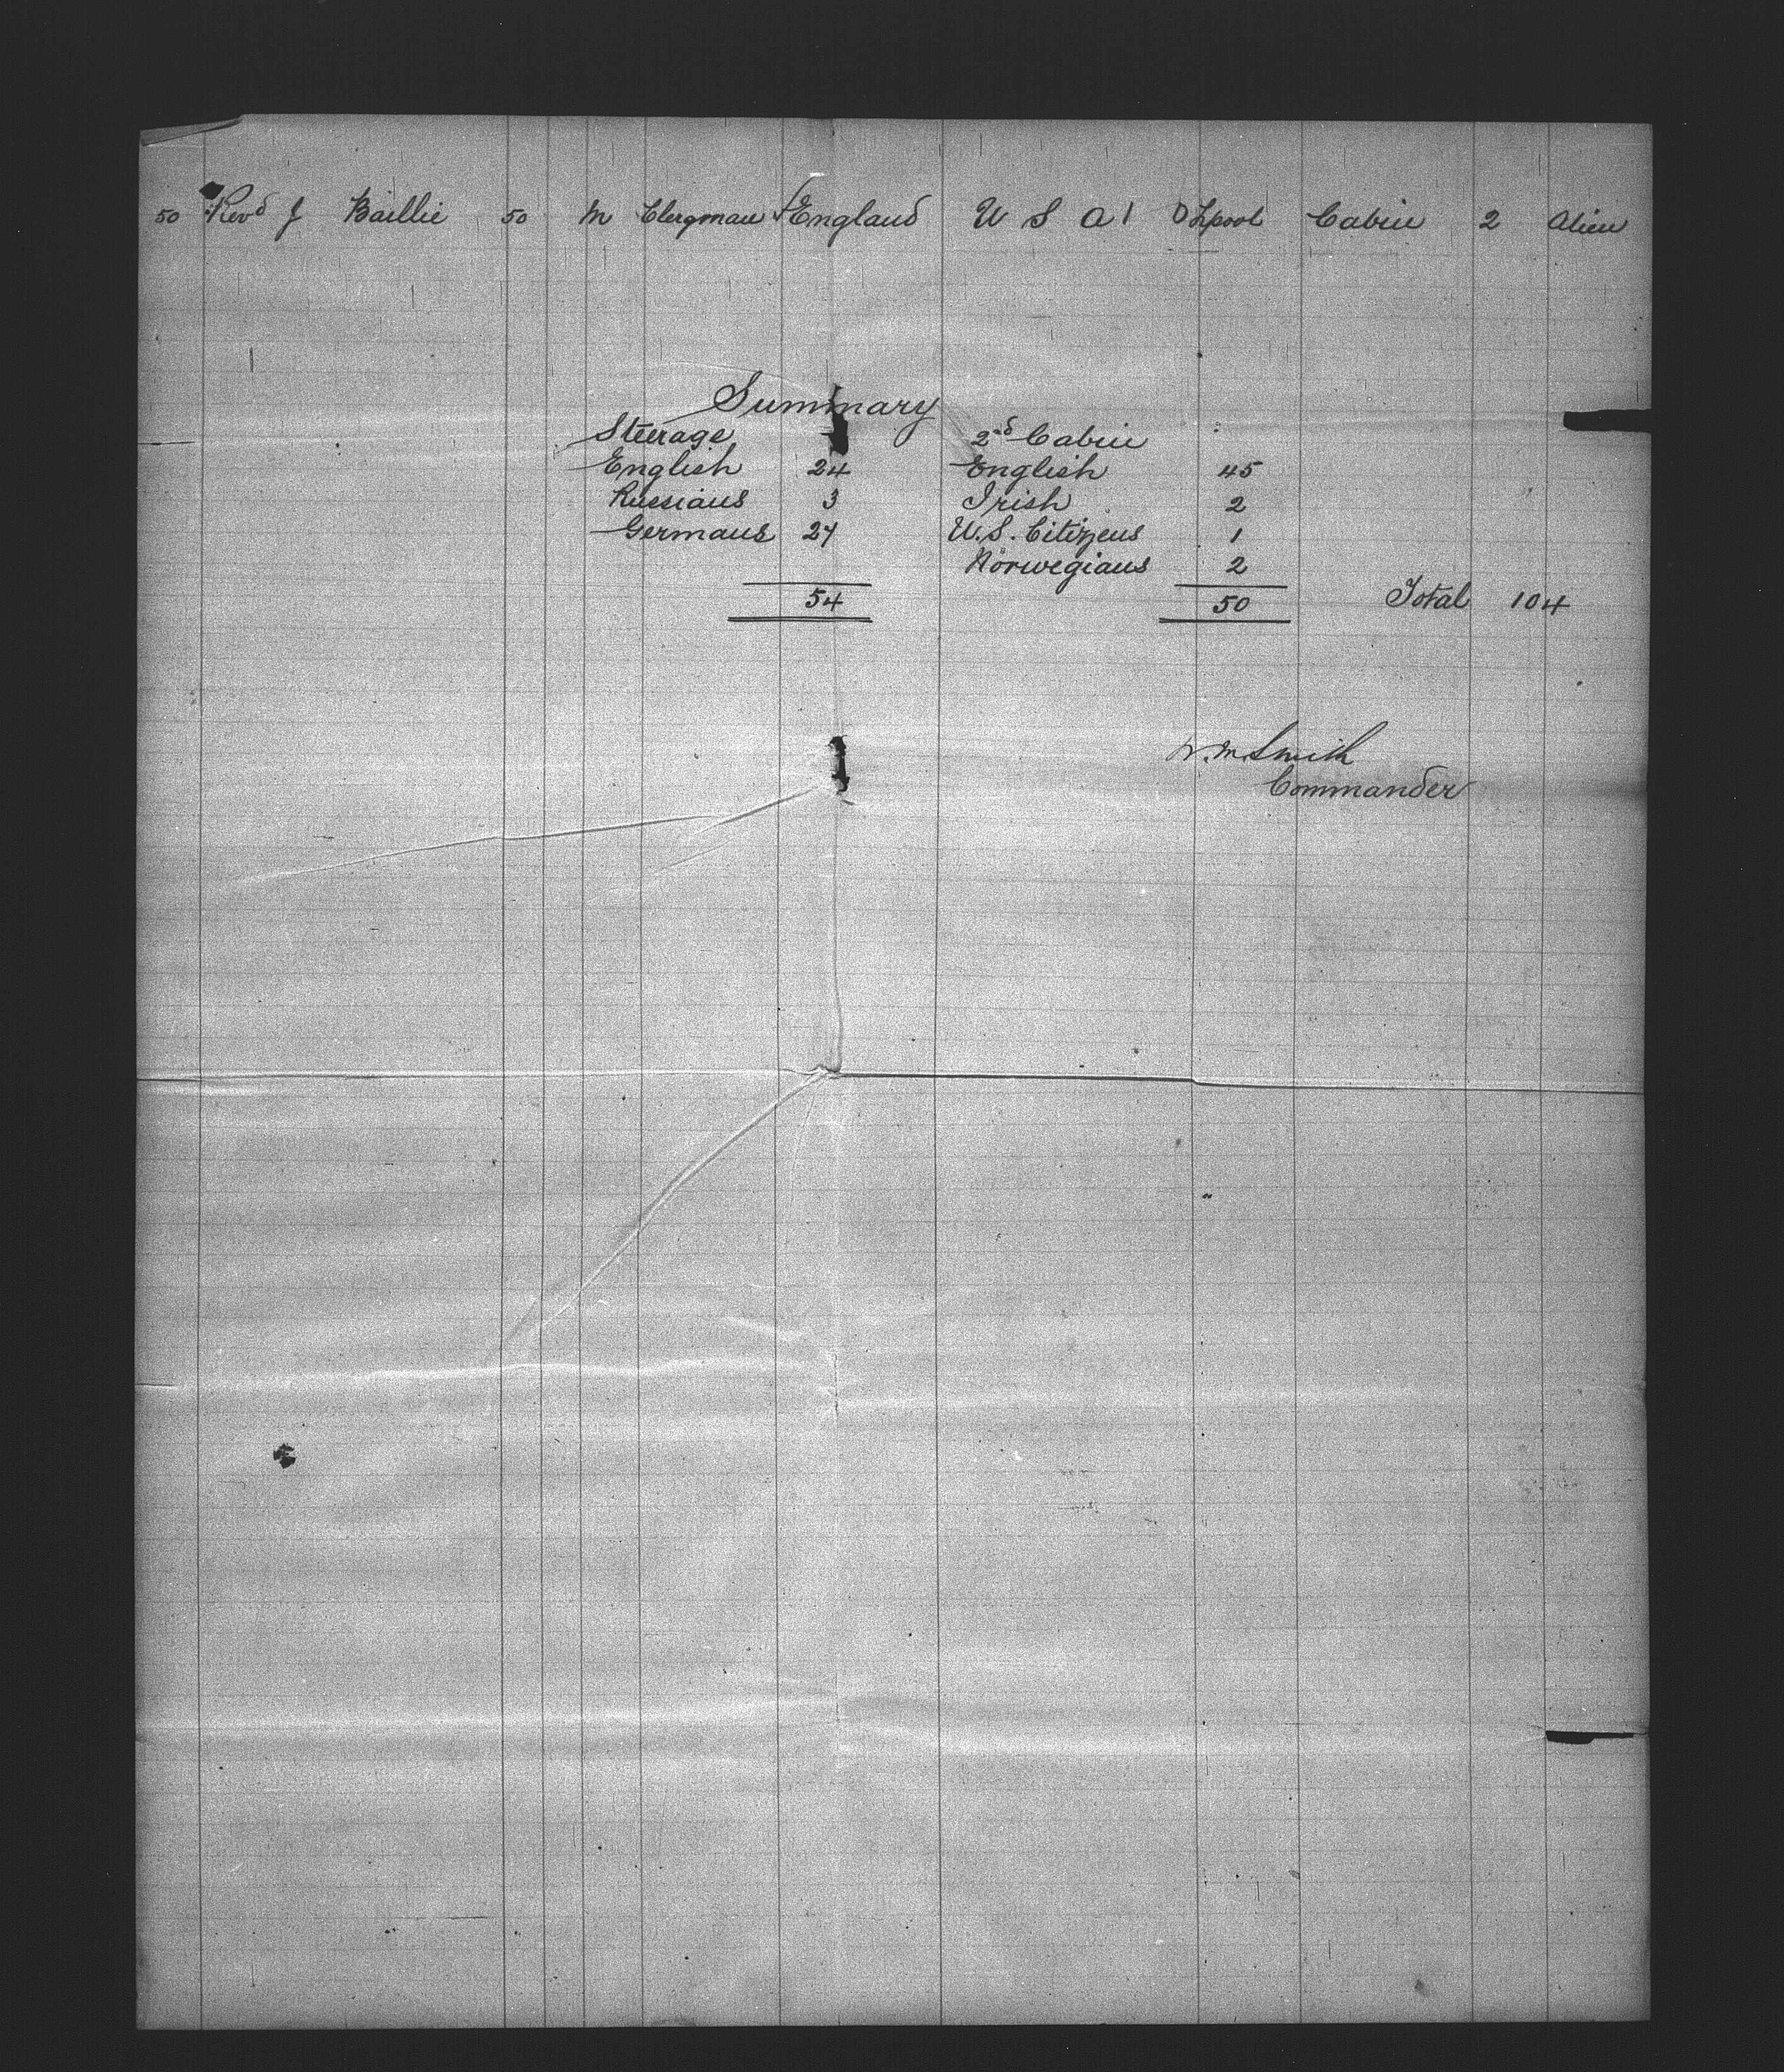 50 Revd J Baillie 50 M Clergman England U S A 1 0 Lpool Cabin 2 Alien
Summary
Steerage 2d Cabin
English 24 English 45
Russians 3 Irish 2
Germans 27 U.S. Citizens 1
Norwegians 2
54 50 Total 104
W. M. Smith
Commander